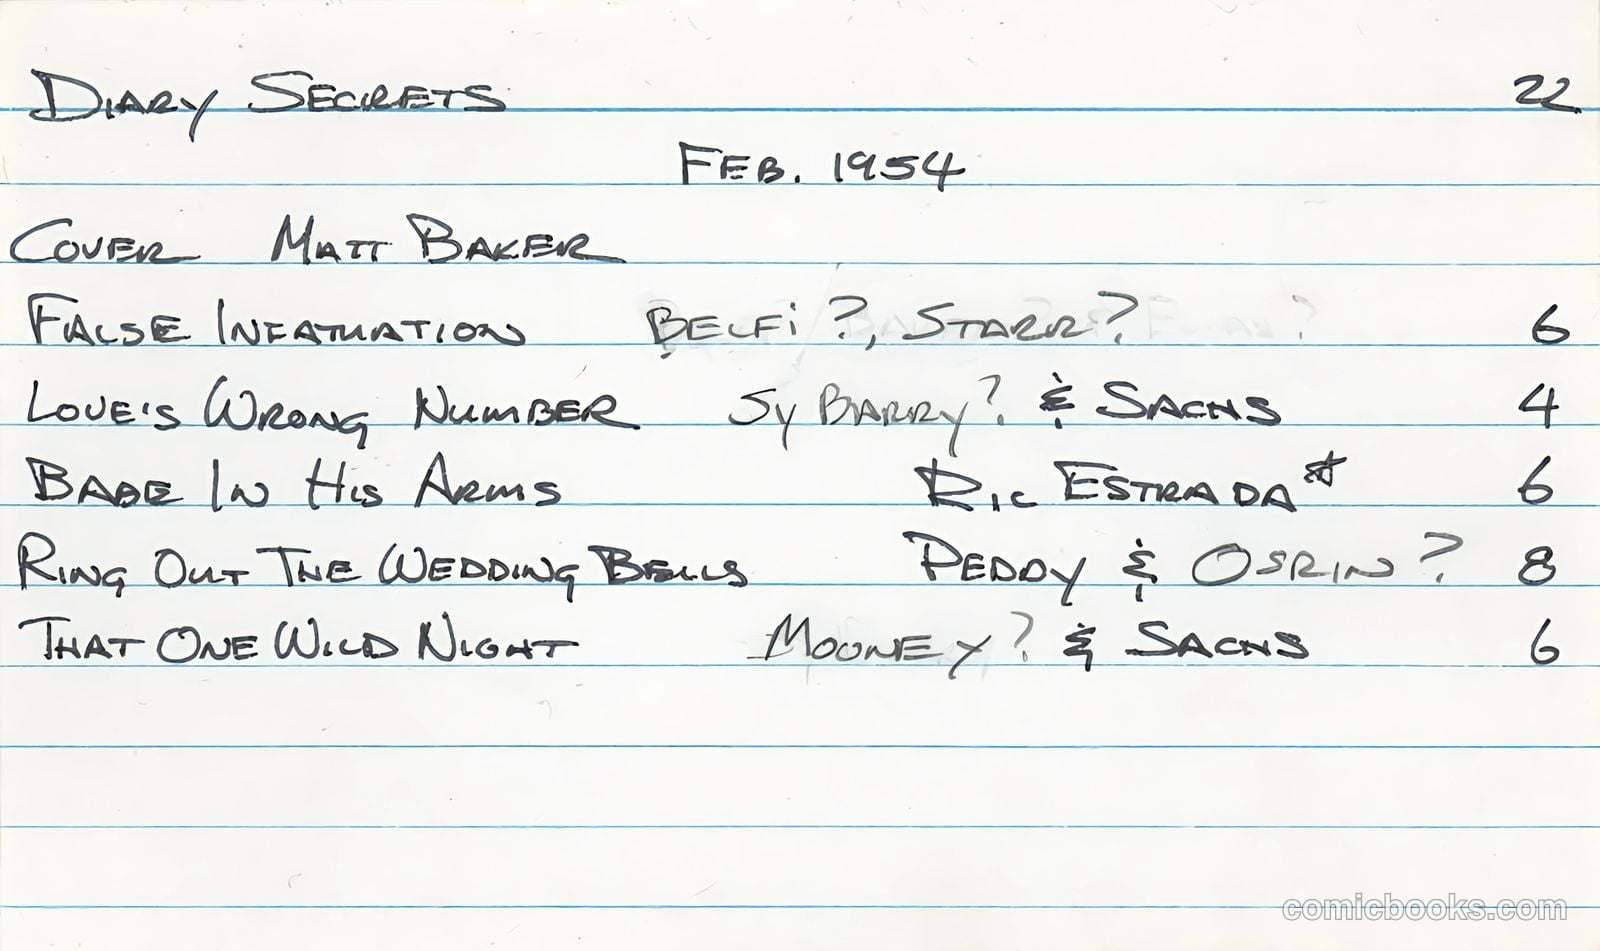 DIARY SECRETS 22
FEB. 1954
COVER MATT BAKER
FALSE INFATUATION BELFI ?, STARR? 6
LOVE'S WRONG NUMBER SY BARRY? & SACHS 4
BABE IN HIS ARMS RIC ESTRADA* 6
RING OUT THE WEDDING BELLS PEDDY & OSRIN ? 8
THAT ONE WILD NIGHT MOONEY ? & SACHS 6
comicbooks.com